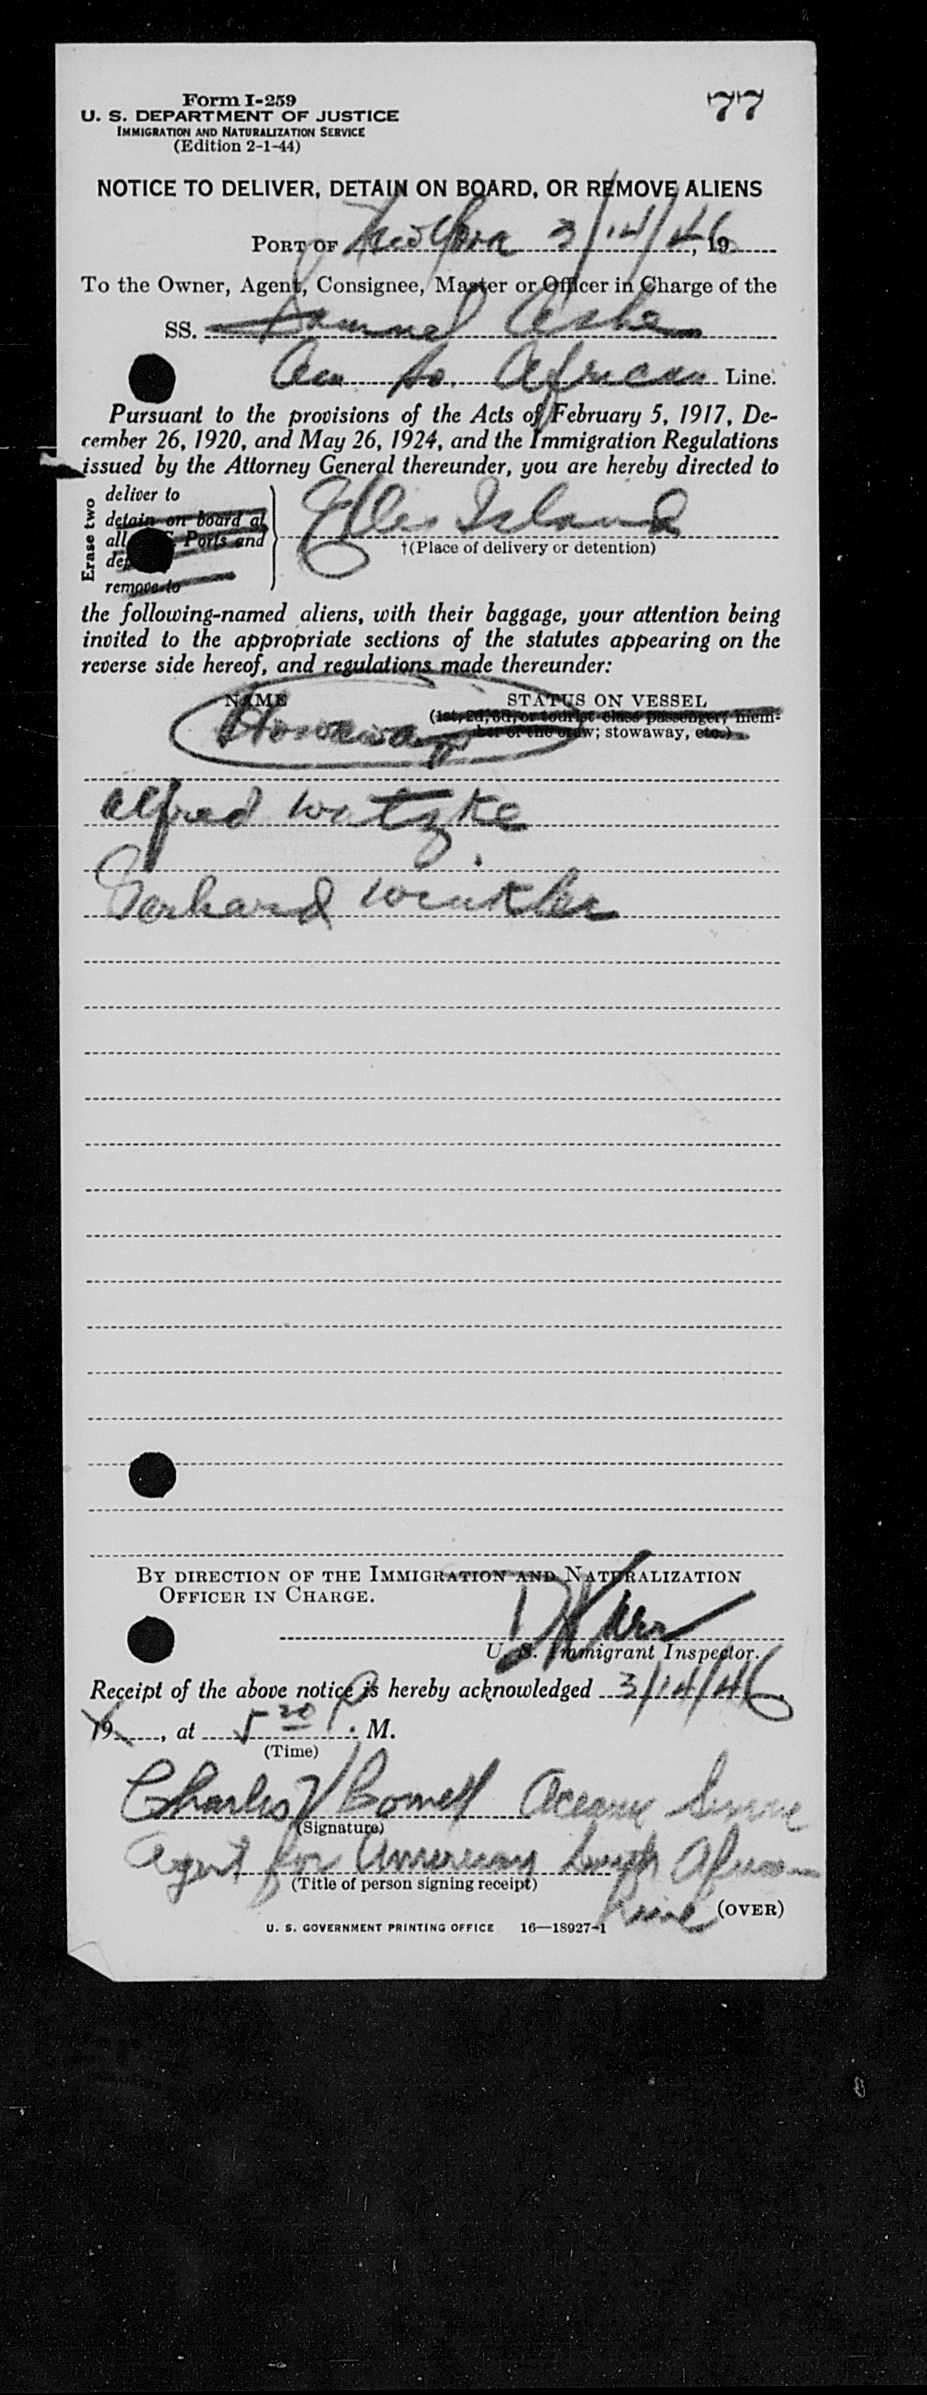 Form I-259
77
U. S. DEPARTMENT OF JUSTICE
IMMIGRATION AND NATURALIZATION SERVICE
(Edition 2-1-44)
NOTICE TO DELIVER, DETAIN ON BOARD, OR REMOVE ALIENS
PORT OF New York 3/14/46, 19
To the Owner, Agent, Consignee, Master or Officer in Charge of the
SS. Samuel Ashe
Am So. African Line.
Pursuant to the provisions of the Acts of February 5, 1917, De-
cember 26, 1920, and May 26, 1924, and the Immigration Regulations
issued by the Attorney General thereunder, you are hereby directed to
Erase two
deliver to
detain on board at
all Ports and
remove to
Ellis Island
†(Place of delivery or detention)
the following-named aliens, with their baggage, your attention being
invited to the appropriate sections of the statutes appearing on the
reverse side hereof, and regulations made thereunder:
NAME STATUS ON VESSEL
(1st, 2d, 3d, or tourist class passenger; mem-
ber of the crew; stowaway, etc.)
Stowaway
Alfred Watzke
Gerhard Winkler
BY DIRECTION OF THE IMMIGRATION AND NATURALIZATION
OFFICER IN CHARGE.
U. S. Immigrant Inspector.
Receipt of the above notice is hereby acknowledged 3/14/46
19, at 5 20 P. M.
(Time)
Charles Oceanic Service
(Signature)
Agent for American South African
(Title of person signing receipt)
Line (OVER)
U. S. GOVERNMENT PRINTING OFFICE 16—18927-1